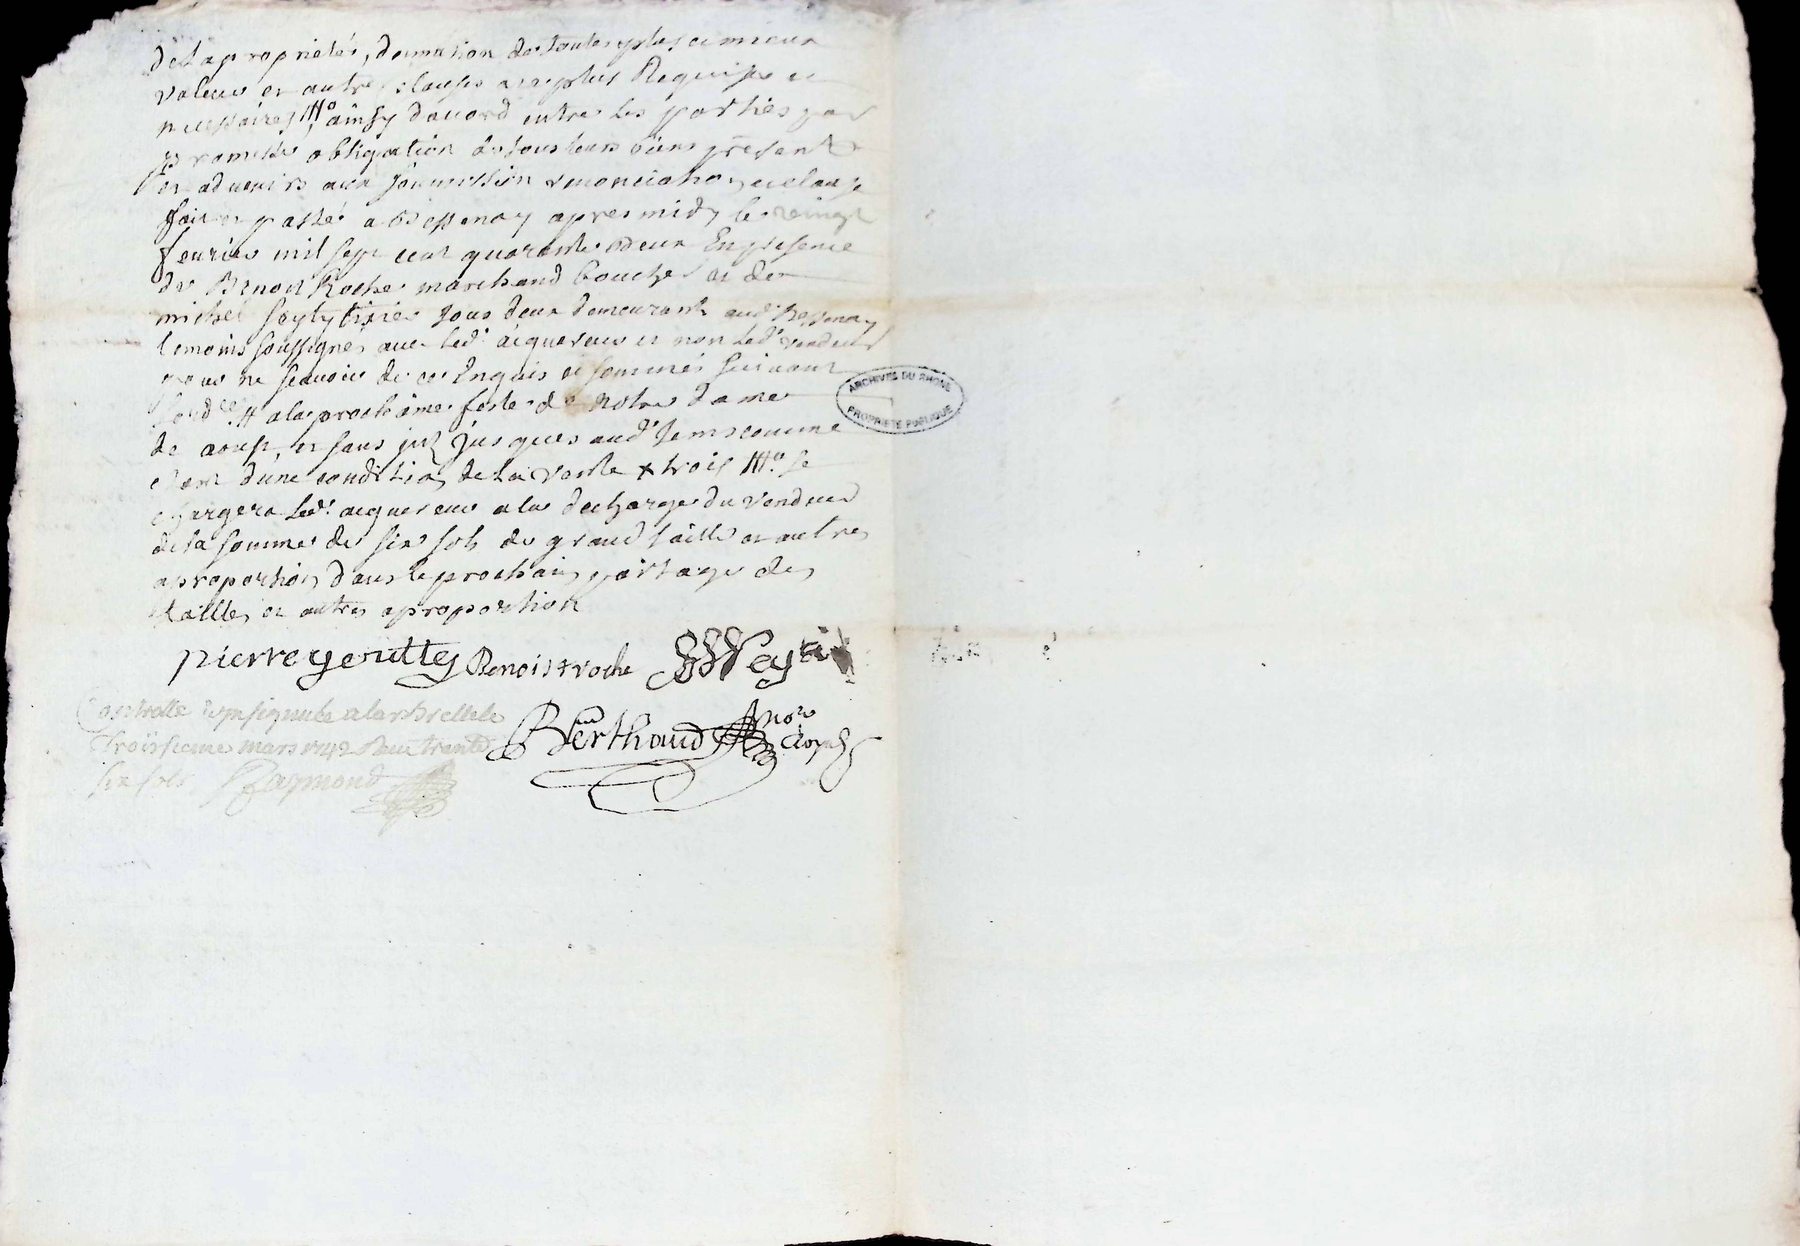 de la proprietés, demission de toutes plus et mieux
valeur et autres clauses a ce plus Requises et
necessaires ainsy dacord entre les parties par
promesse obligation de tous leurs biens present
et advenirs aux soumission renonciation et clause
fait et passé a Bessenay apres midy le vingt
feurier mil sept cent quarante deux En presence
de Benoit Roche marchand boucher et de
michel tixier tous deux demeurant aud. Bessenay
temoins soussignés avec led. acquereur et non led. vendeur
pour ne scauoir de ce Enquis et sommés suivant
lord.ce a la prochaine feste de notre dame
de aoust, et sans jusques aud. tems comme
dune condition de la vente x trois se
chargera led. acquereur a la decharge du vendeur
de la somme de six sols de grand taille et autres
a proportion dans le prochain partage des
tailles et autres a proportion
pierre Benoist roche
ARCHIVES DU RHONE
PROPRIETE PUBLIQUE
Berthaud no.re Royal
Controllé a larbrelle le
troisieme mars 1742 trente
six sols Raymond